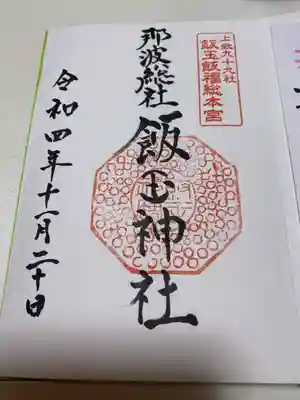 上武九十九社
飯玉飯福総本宮
那波総社
飯玉神社
令和四年十一月二十日